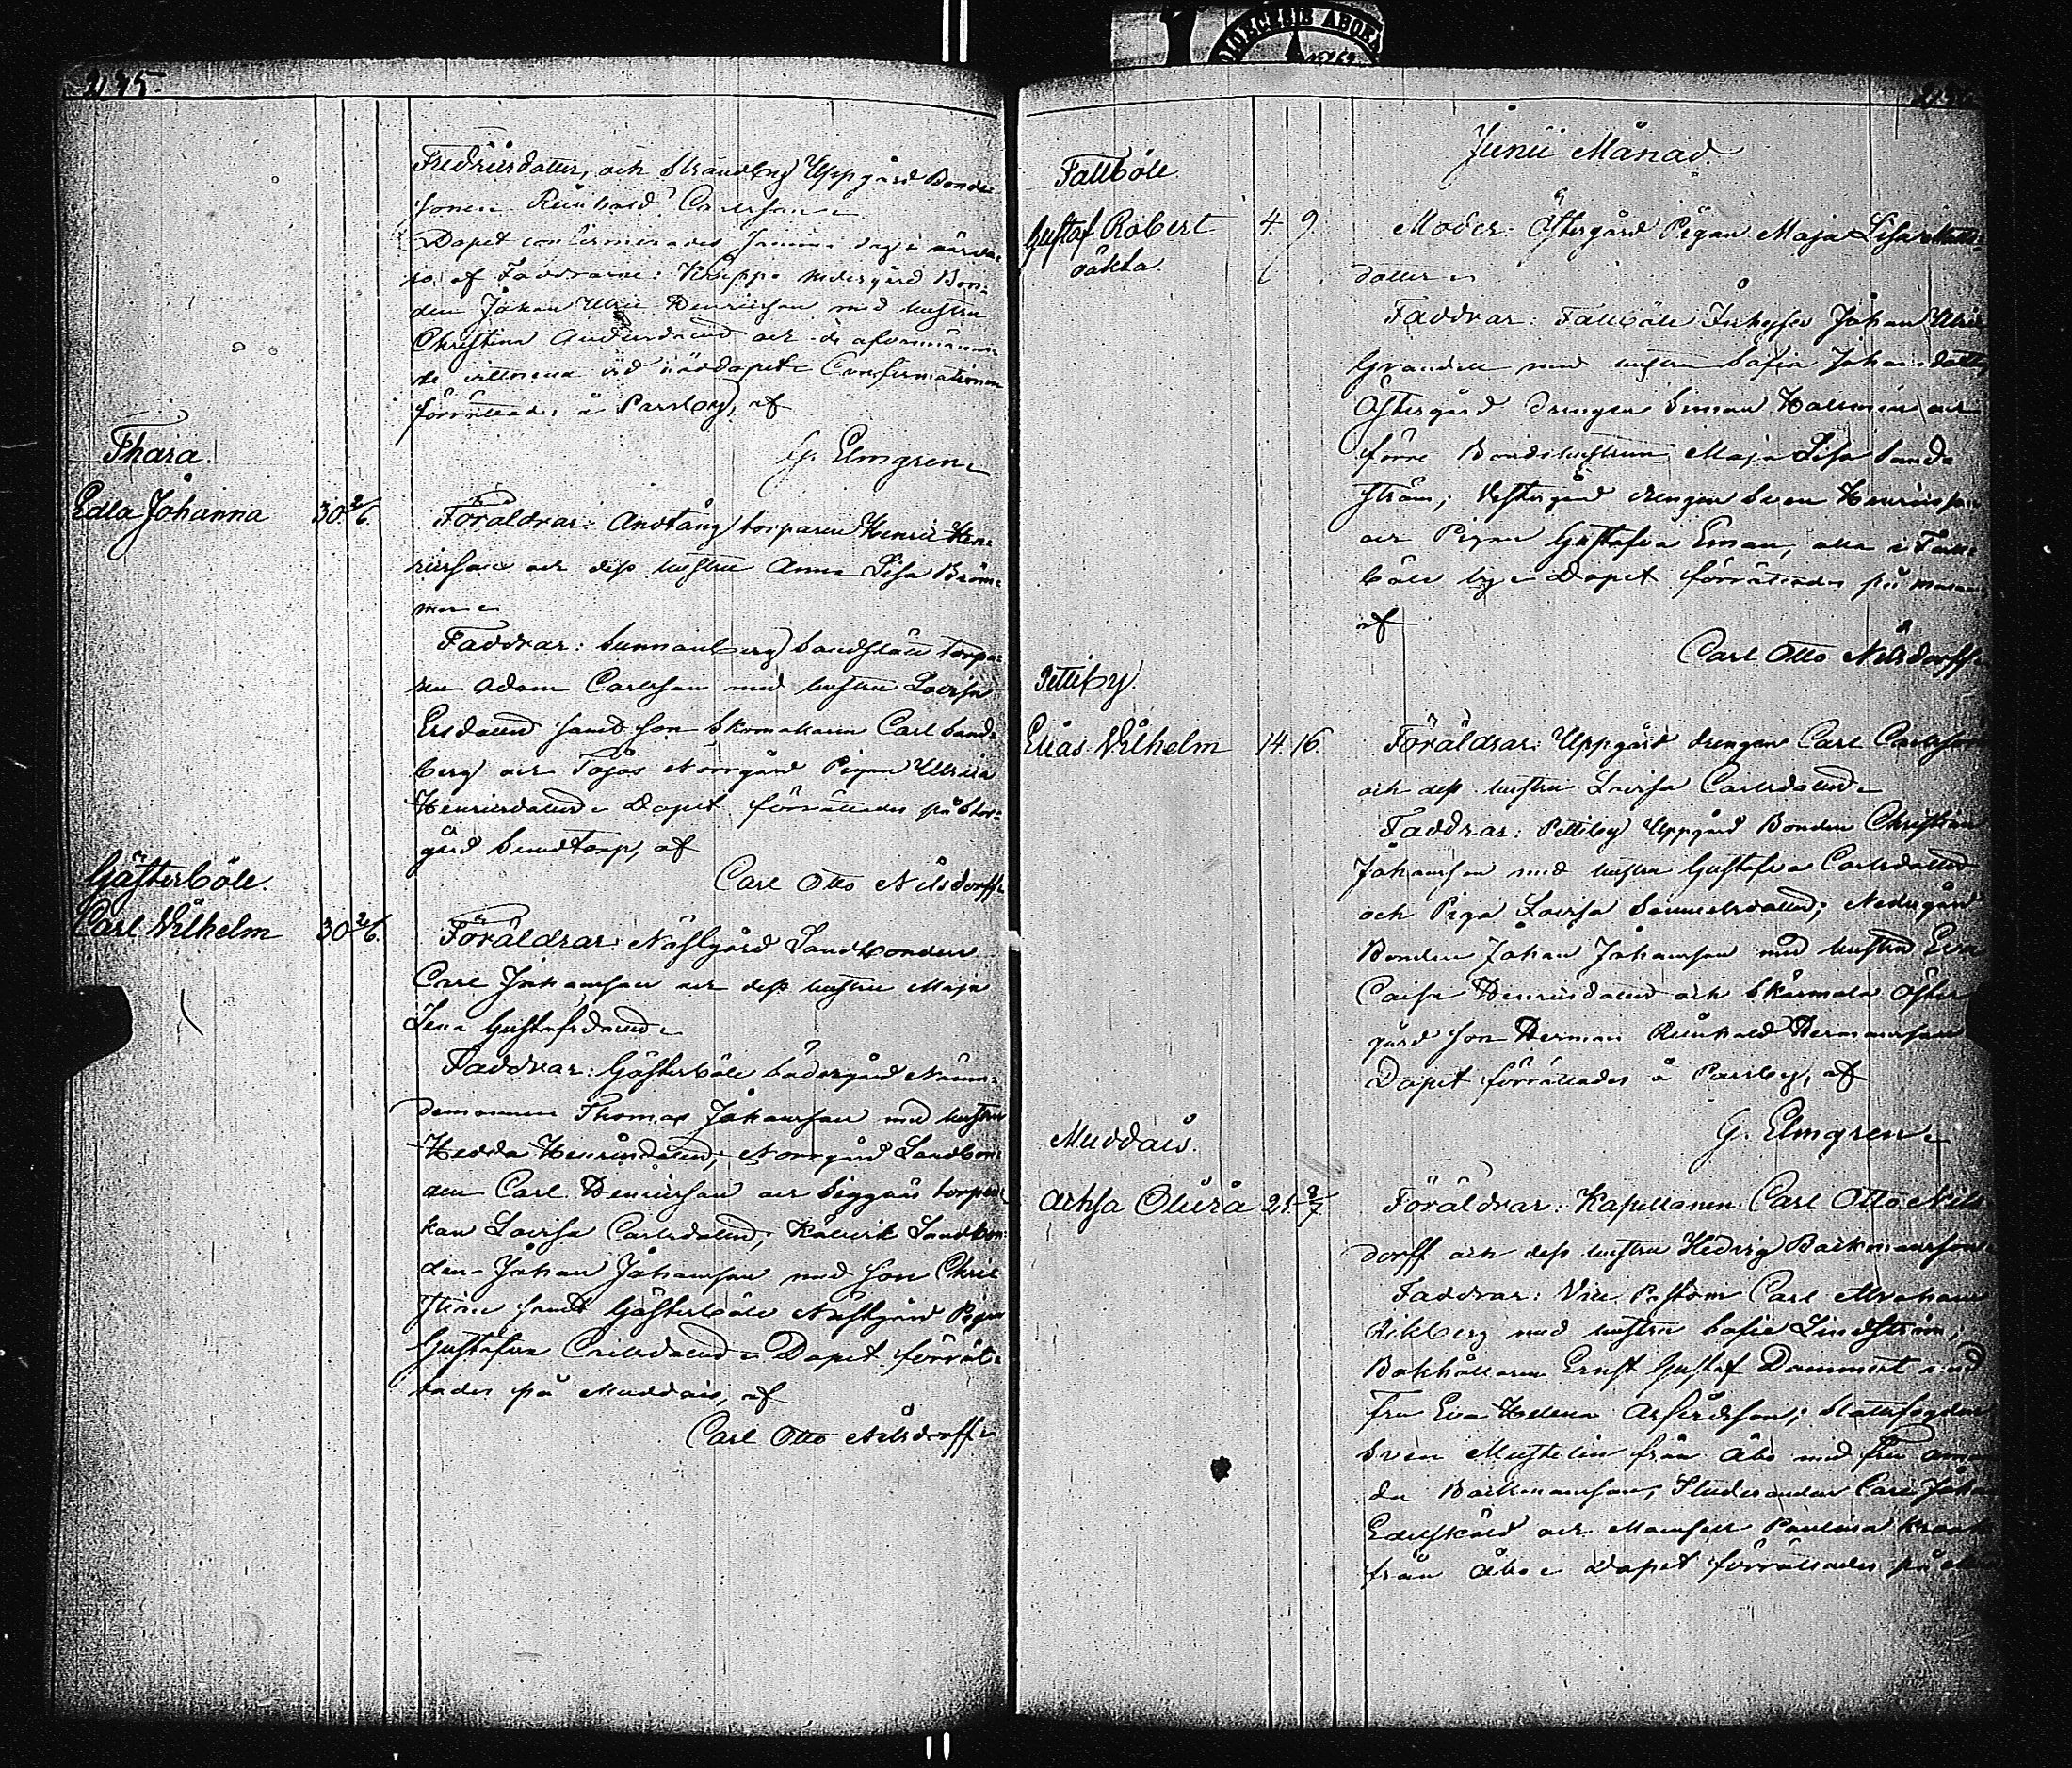 275
Fredriksdotter, och Strandby Uppgård Bonde
sonen Reinhold Carlsson
Dopet confirmerades samma dag i närva
ro af Faddrarne: Knappe nedergård Bon-
den Johan Ulric Henricsson med hustru
Christina Andersdotter och de ofvannämn
de vittnena vid nöddopet. Confirmationen
förrättades å Parsby, af
G. Elmgren
Thara.
Edla Johanna 30 2/6. Föräldrar: Andtäng torparen Henric Hen-
ricsson och dess hustru Anna Lisa Bröm-
mer
Faddrar: Sunnanberg torpa-
ren Adam Carlsson med hustru Lovisa
Ersdotter samt son Skomakaren Carl Sand-
berg och Norrgård Pigan Ulrica
Henricsdotter. Dopet förrättades på Stor-
gård Sundtorp, af
Carl Otto Nilsdorff
Gästerböle.
Carl Wilhelm 30 2/6. Föräldrar: Nästgård Landbonden
Carl Johansson och dess hustru Maja
Lena Gustafsdotter
Faddrar: Gästerböle Södergård Nämn-
demannen Thomas Johansson med hustru
Hedda Henricsdotter; Norrgård Landbon-
den Carl Henricsson och torpar
kan Lovisa Carlsdotter; Landbon-
den Johan Johansson med son Chris
tian samt Gästerböle Nästgård Pigan
Gustafva Carlsdotter. Dopet förrät-
tades på Muddais, af
Carl Otto Nilsdorff
276
Junii Månad.
Fallböle.
Gustaf Robert 4 9 Moder: Östergård Pigan Maja Lisa Matts
oäkta. dotter
Faddrar: Fallböle Inhyses Johan Ulric
Grandell med hustru Sofia Johansdotter
Östergård drengen Simon och
förre Bondehustrun Maja Lisa Sand
ström; Vestergård drengen Sven Henricsson
och Pigan Gustafva Eman, alla i Fall-
böle by. Dopet förrättades på
af
Carl Otto Nilsdorff
Pettiby.
Elias Wilhelm 14. 16. Föräldrar: Uppgård drengen Carl Carlsson
och dess hustru Lovisa Carlsdotter
Faddrar: Pettiby Uppgård Bonden Christian
Johansson med hustru Gustafva Carlsdotter
och Piga Lovisa Samuelsdotter; Nedergård
Bonden Johan Johansson med hustru Eva
Caisa Henricsdotter och Skärmola Öster
gård son Herman Reinhold Hermansson
Dopet förrättades å Parsby, af
G. Elmgren
Muddais.
Achsa Olivia 25 2/7 Föräldrar: Kapellanen Carl Otto Nils-
dorff och dess hustru Hedvig Backmansson
Faddrar: Vice Pastorn Carl Abraham
Rikberg med hustru Sofie Lindström;
Bokhållaren Ernst Gustaf Dammert med
fru Eva Helena Arfvidsson; Slottsfogden
Sven Mustelin från Åbo med fru Aman
da Backmansson; Studeranden Carl Johan
Edelsköld och Mamsell Paulina
från Åbo. Dopet förrättades på